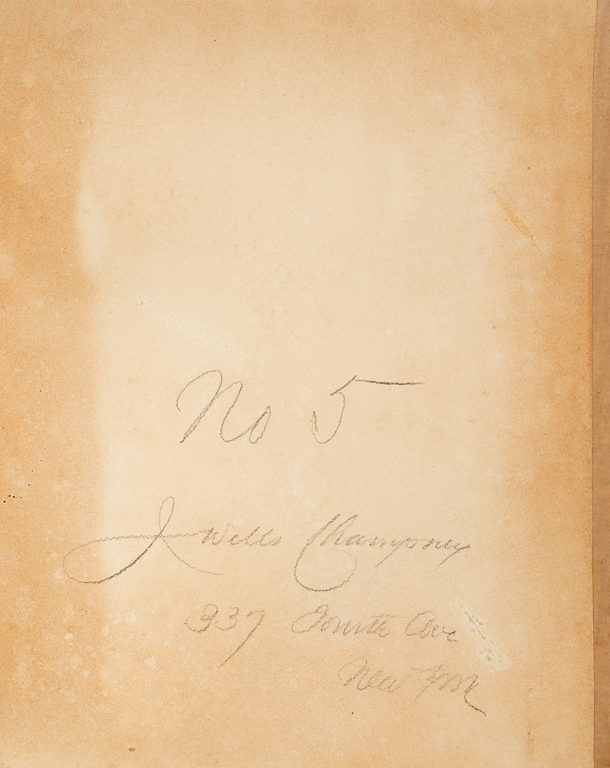 No 5
J Wells Champney
337 Fourth Ave
New York